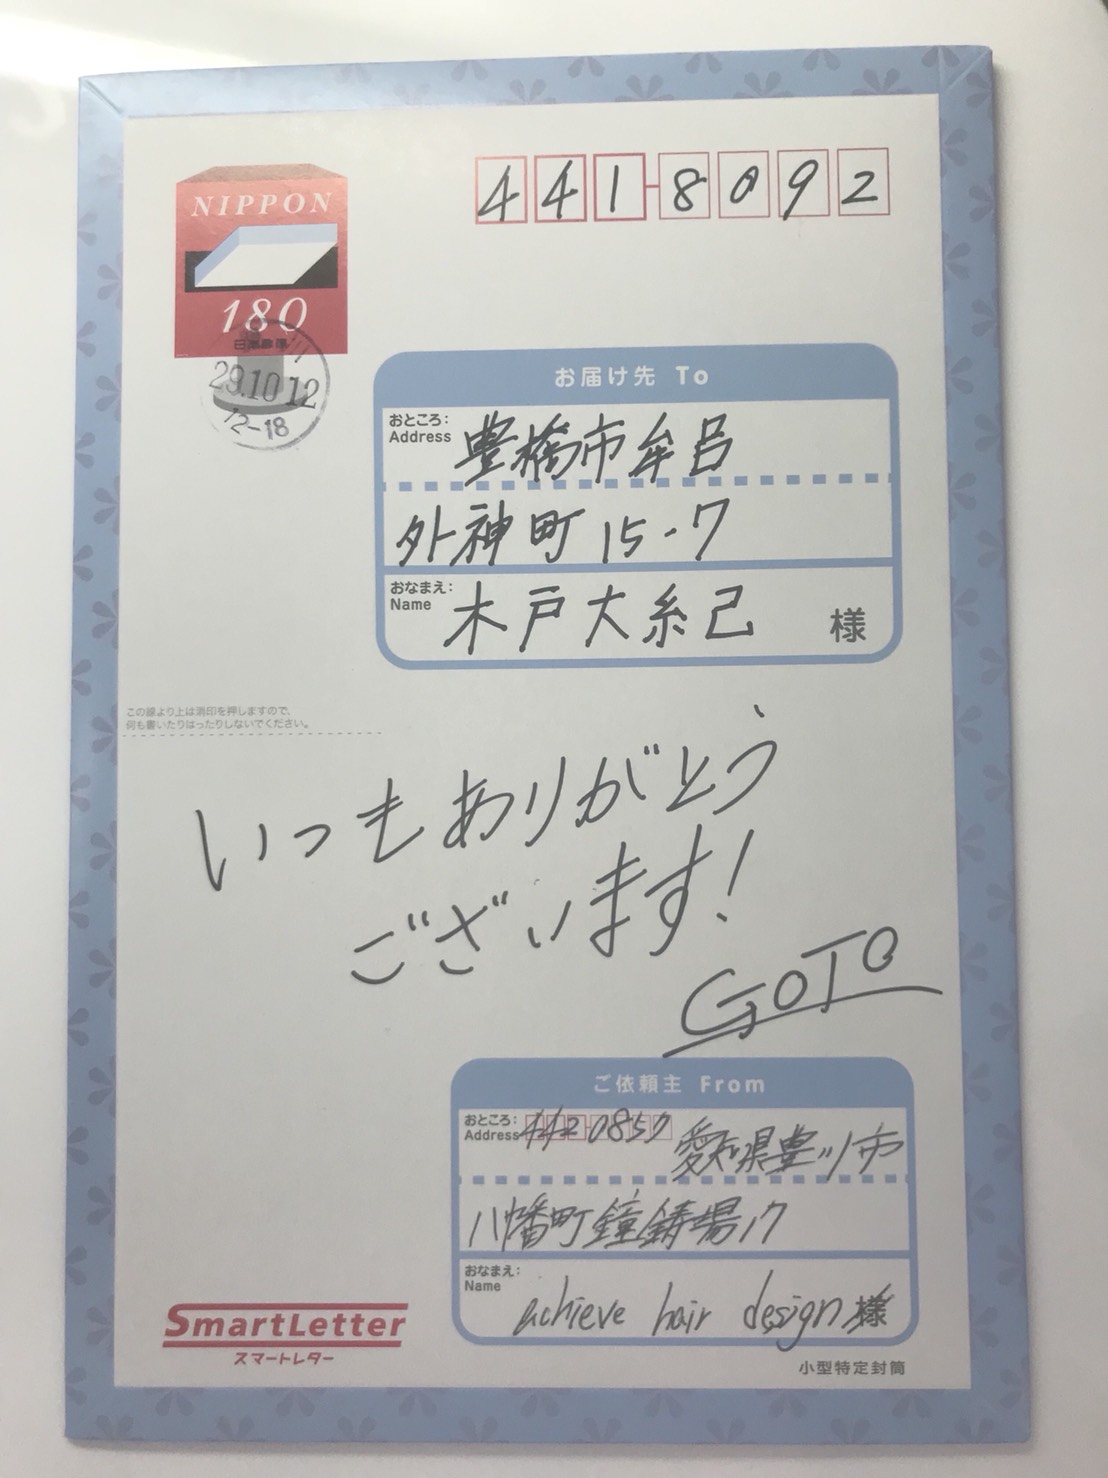 NIPPON
180
日本郵便
29.10.12
12-18
441-8092
お届け先 To
おところ:
Address
豊橋市牟呂
外神町15-7
おなまえ:
Name
木戸大糸己 様
この線より上は消印を押しますので、
何も書いたりはったりしないでください。
いつもありがとう
ございます!
GOTO
ご依頼主 From
おところ:
Address
442 0857 愛知県豊川市
八幡町鐘鋳場17
おなまえ:
Name
achieve hair design 様
SmartLetter
スマートレター
小型特定封筒